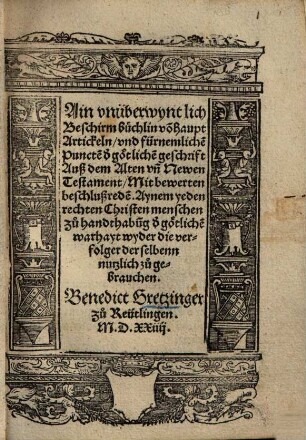 1
Ain vnüberwyntlich
Beschirm büchlin võ haupt
Artickeln/ vnd fürnemlichē
Punctē d̕ götlichē geschrift
Auß dem Alten vñ Newen
Testament/ Mit bewerten
beschlußredē. Aynem yeden
rechten Christen menschen
zů handthabũg d̕ götlichē
warhayt wyder die ver-
folger der selbenn
nutzlich zů ge-
brauchen.
Benedict Gretzinger
zů Reütlingen.
M. D. XXiiij.